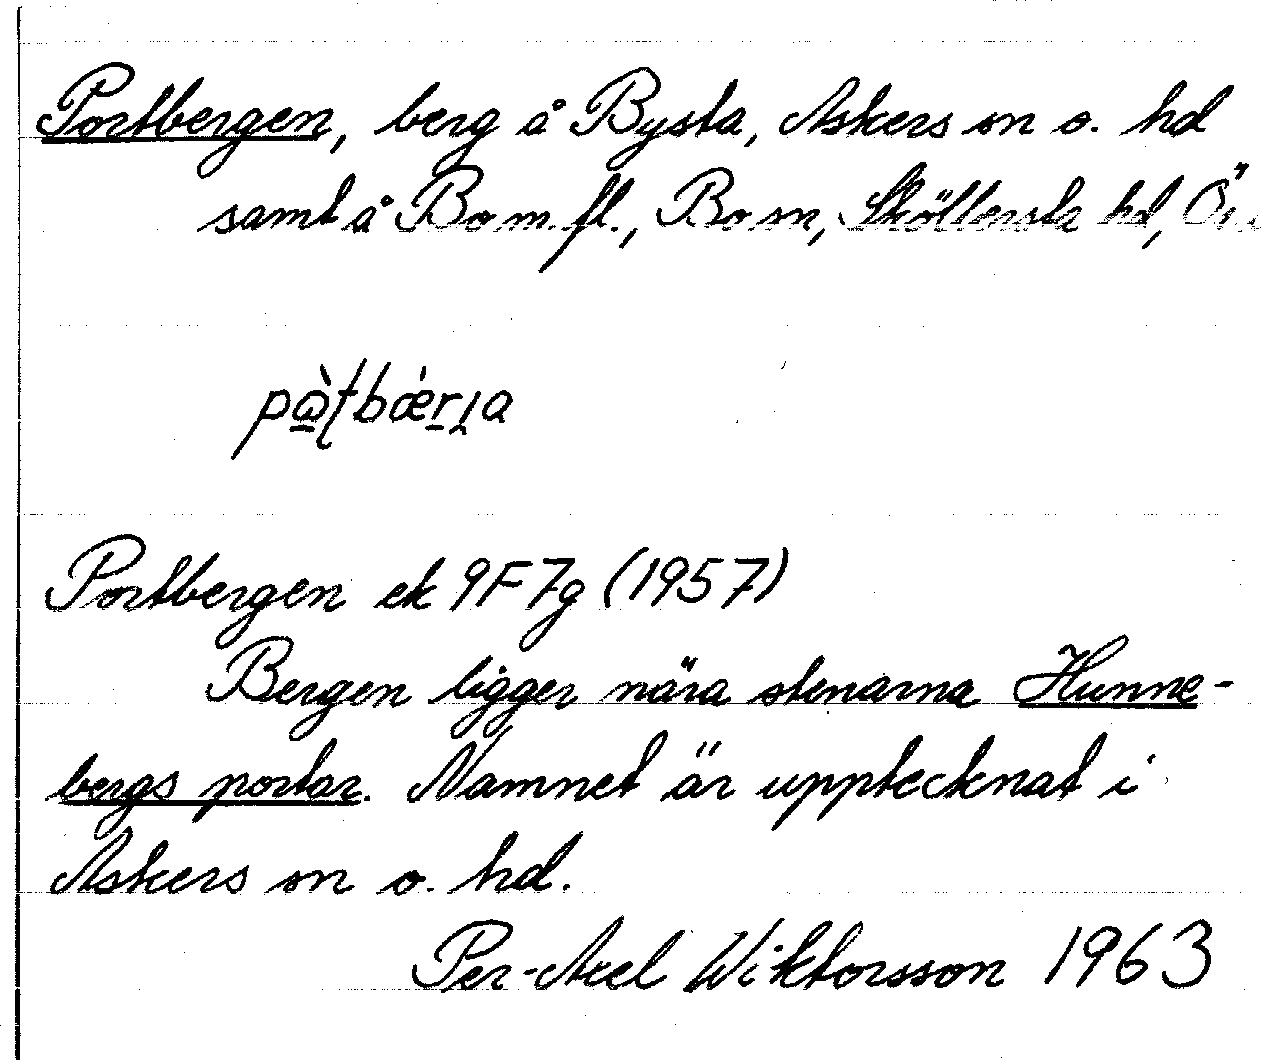 Portbergen, berg å Bysta, Askers sn o. hd
samt å Bo m. fl., Bo sn, Sköllersta hd, Ör.
Portbergen ek 9F 7g (1957)
Bergen ligger nära stenarna Hunne-
bergs portar. Namnet är upptecknat i
Askers sn o. hd.
Per-Axel Wiktorsson 1963